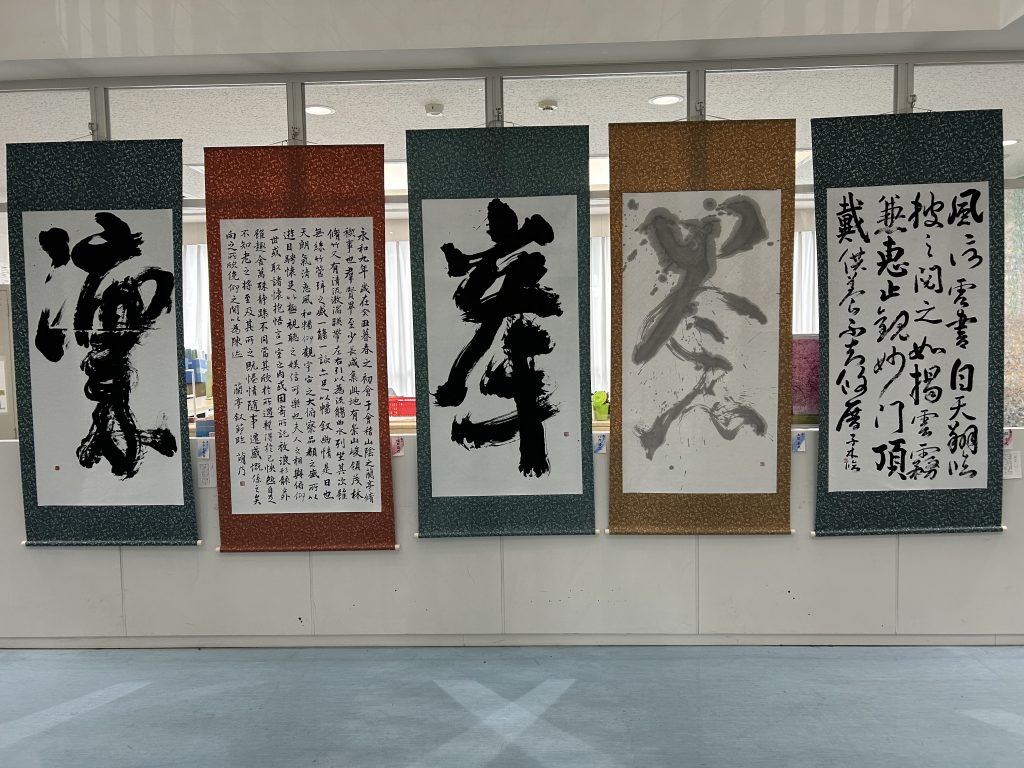 永和九年歳在癸丑暮春之初會于會稽山陰之蘭亭脩
禊事也羣賢畢至少長咸集此地有崇山峻領茂林
脩竹又有清流激湍暎帶左右引以為流觴曲水列坐其次雖
無絲竹管弦之盛一觴一詠亦足以暢叙幽情是日也
天朗氣清惠風和暢仰觀宇宙之大俯察品類之盛所以
遊目騁懷足以極視聽之娯信可樂也夫人之相與俯仰
一世或取諸懷抱悟言一室之内或因寄所託放浪形骸之外
雖趣舍萬殊靜躁不同當其欣於所遇蹔得於己快然自足
不知老之將至及其所之既惓情隨事遷感慨係之矣
向之所欣俛仰之間以為陳迹 蘭亭叙節臨
風信雲書自天翔臨
披之閲之如揭雲霧
兼惠止觀妙门頂
戴供養不知攸厝